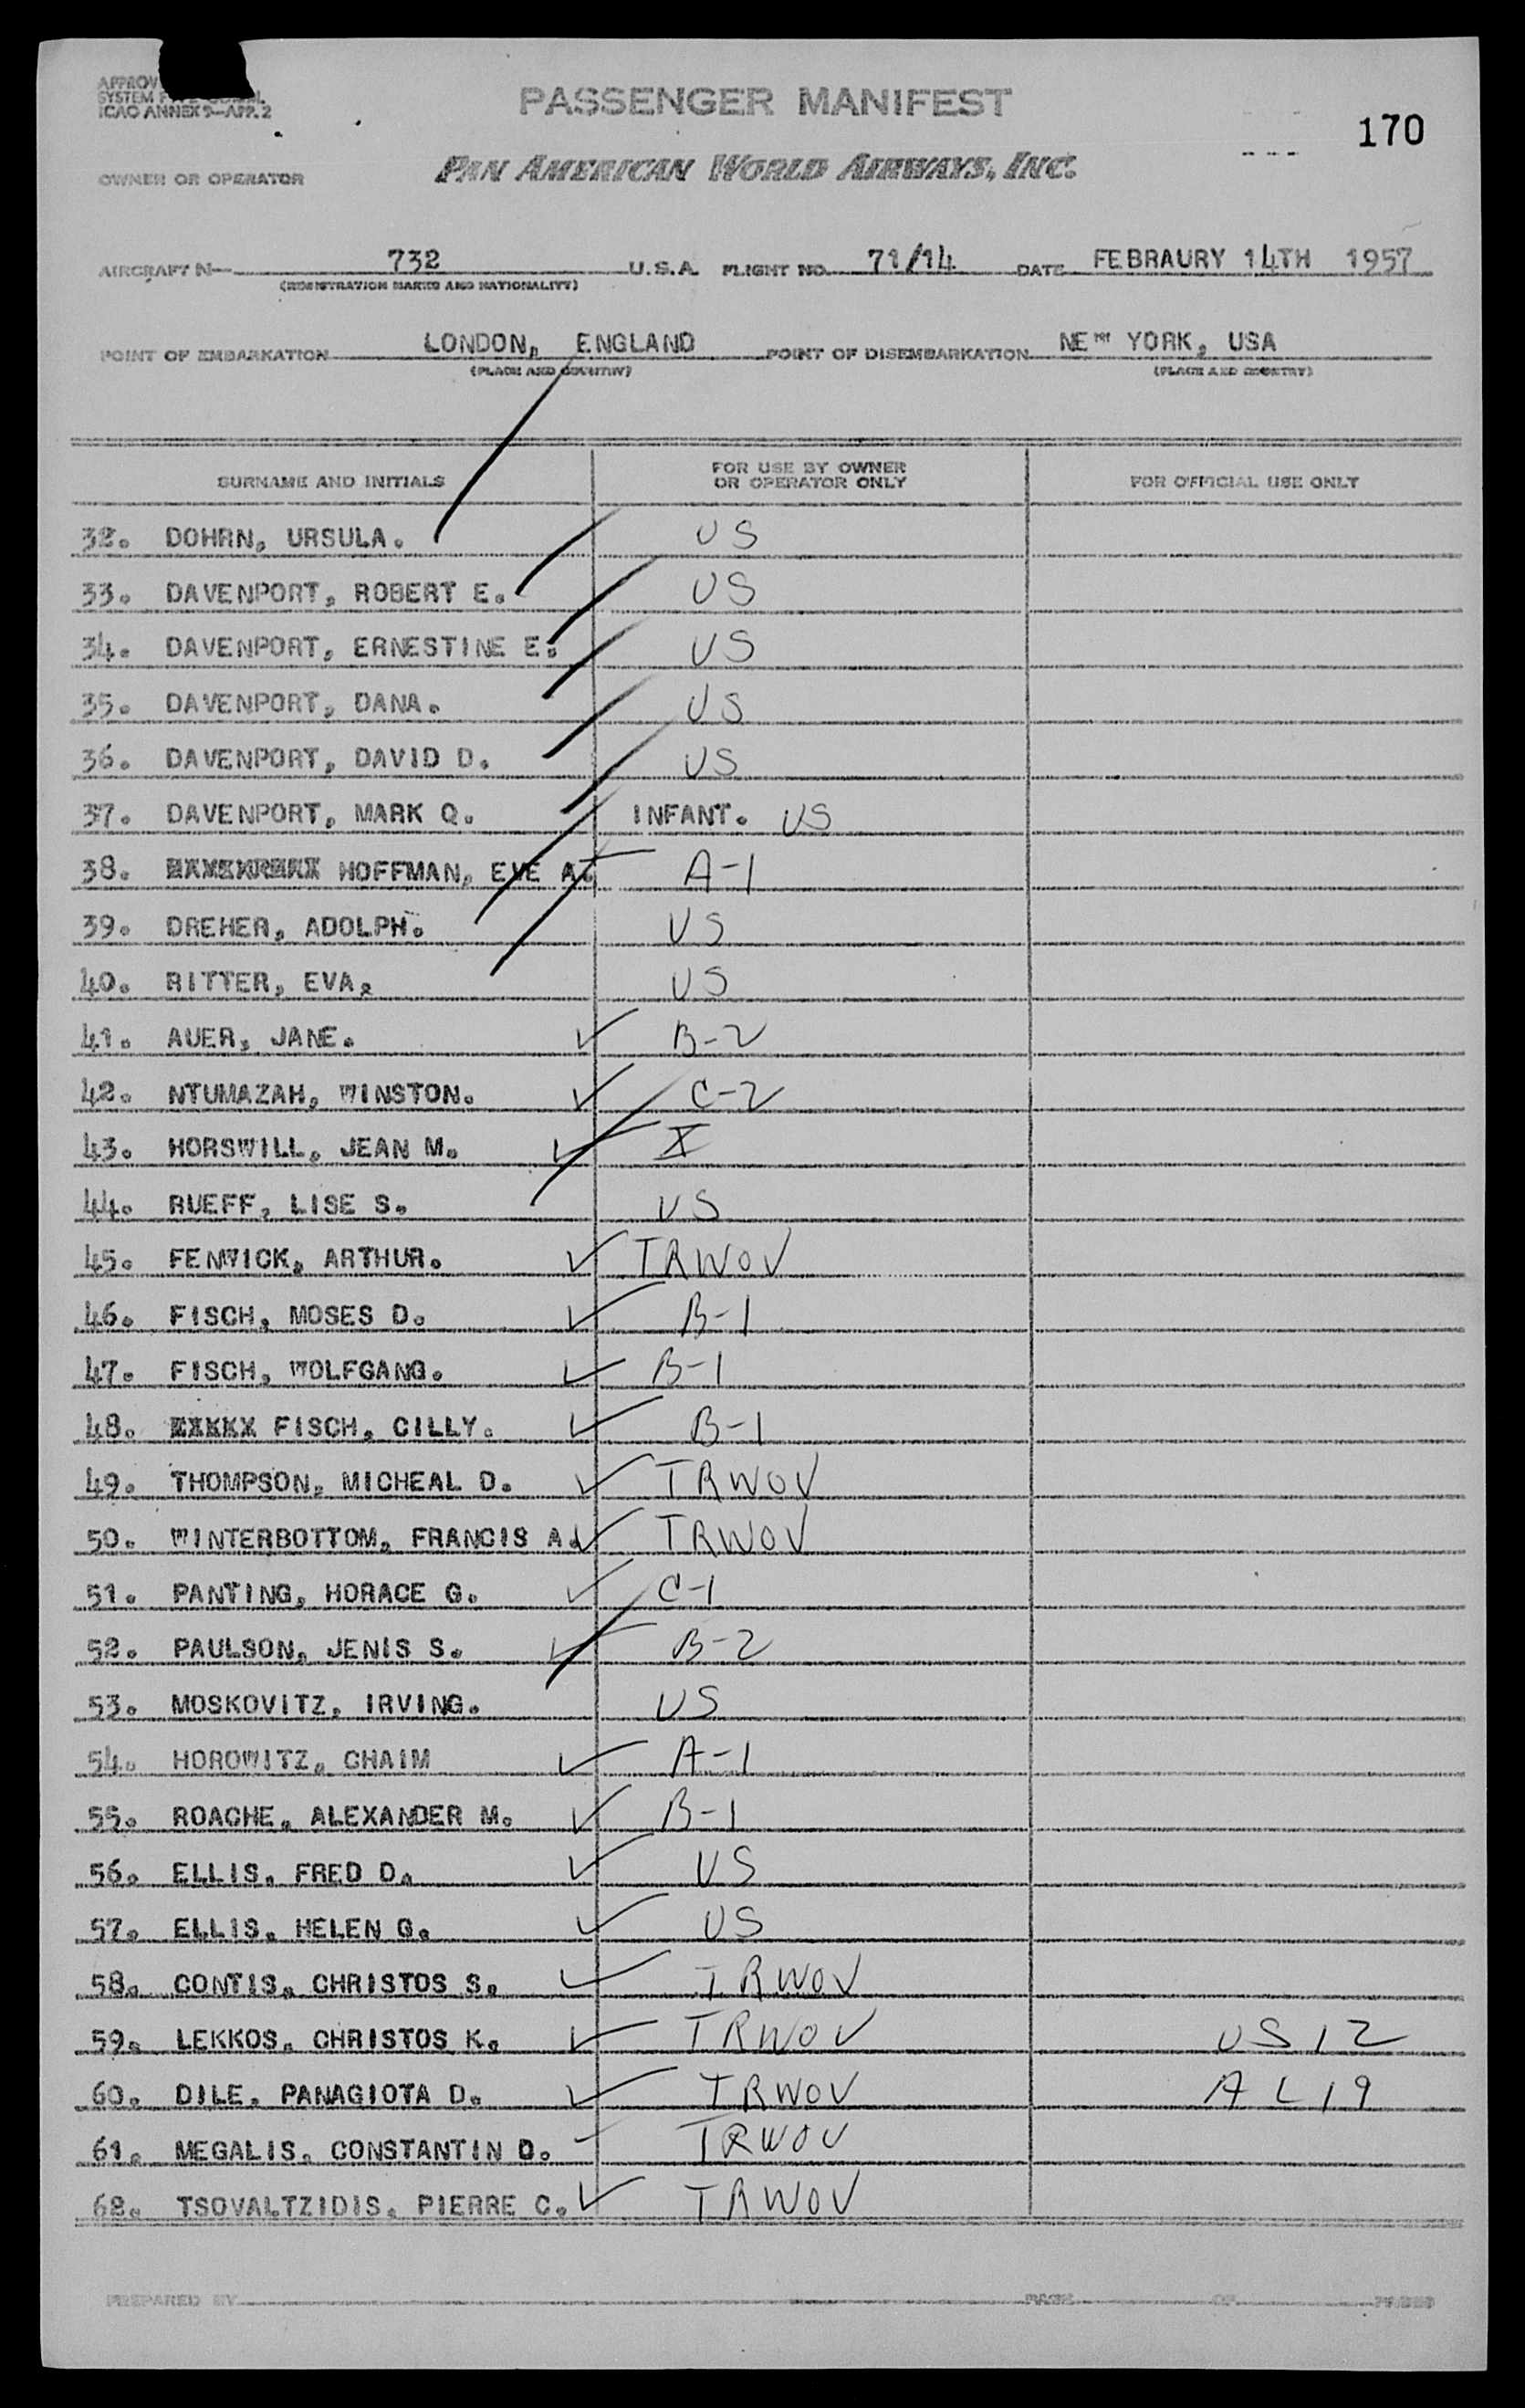 APPROV
SYSTEM
ICAO ANNEX 9—APP. 2
PASSENGER MANIFEST
170
OWNER OR OPERATOR
PAN AMERICAN WORLD AIRWAYS, INC.
AIRCRAFT N— 732 U.S.A. FLIGHT NO. 71/14 DATE FEBRAURY 14TH 1957
(REGISTRATION MARKS AND NATIONALITY)
POINT OF EMBARKATION LONDON, ENGLAND POINT OF DISEMBARKATION NEW YORK, USA
(PLACE AND COUNTRY) (PLACE AND COUNTRY)
SURNAME AND INITIALS FOR USE BY OWNER OR OPERATOR ONLY FOR OFFICIAL USE ONLY
32. DOHRN, URSULA. US
33. DAVENPORT, ROBERT E. US
34. DAVENPORT, ERNESTINE E. US
35. DAVENPORT, DANA. US
36. DAVENPORT, DAVID D. US
37. DAVENPORT, MARK Q. INFANT. US
38. HOFFMAN, EVE A. A-1
39. DREHER, ADOLPH. US
40. RITTER, EVA, US
41. AUER, JANE. ✓ B-2
42. NTUMAZAH, WINSTON. ✓ C-2
43. HORSWILL, JEAN M. ✓ X
44. RUEFF, LISE S. US
45. FENWICK, ARTHUR. ✓ TRWOV
46. FISCH, MOSES D. ✓ B-1
47. FISCH, WOLFGANG. ✓ B-1
48. FISCH, CILLY. ✓ B-1
49. THOMPSON, MICHEAL D. ✓ TRWOV
50. WINTERBOTTOM, FRANCIS A. ✓ TRWOV
51. PANTING, HORACE G. ✓ C-1
52. PAULSON, JENIS S. ✓ B-2
53. MOSKOVITZ, IRVING. US
54. HOROWITZ, CHAIM ✓ A-1
55. ROACHE, ALEXANDER M. ✓ B-1
56. ELLIS, FRED D. ✓ US
57. ELLIS, HELEN G. ✓ US
58. CONTIS, CHRISTOS S. ✓ TRWOV
59. LEKKOS, CHRISTOS K. ✓ TRWOV US 12
60. DILE, PANAGIOTA D. ✓ TRWOV AL 19
61. MEGALIS, CONSTANTIN D. ✓ TRWOV
62. TSOVALTZIDIS, PIERRE C. ✓ TRWOV
PREPARED BY PAGE OF PAGES